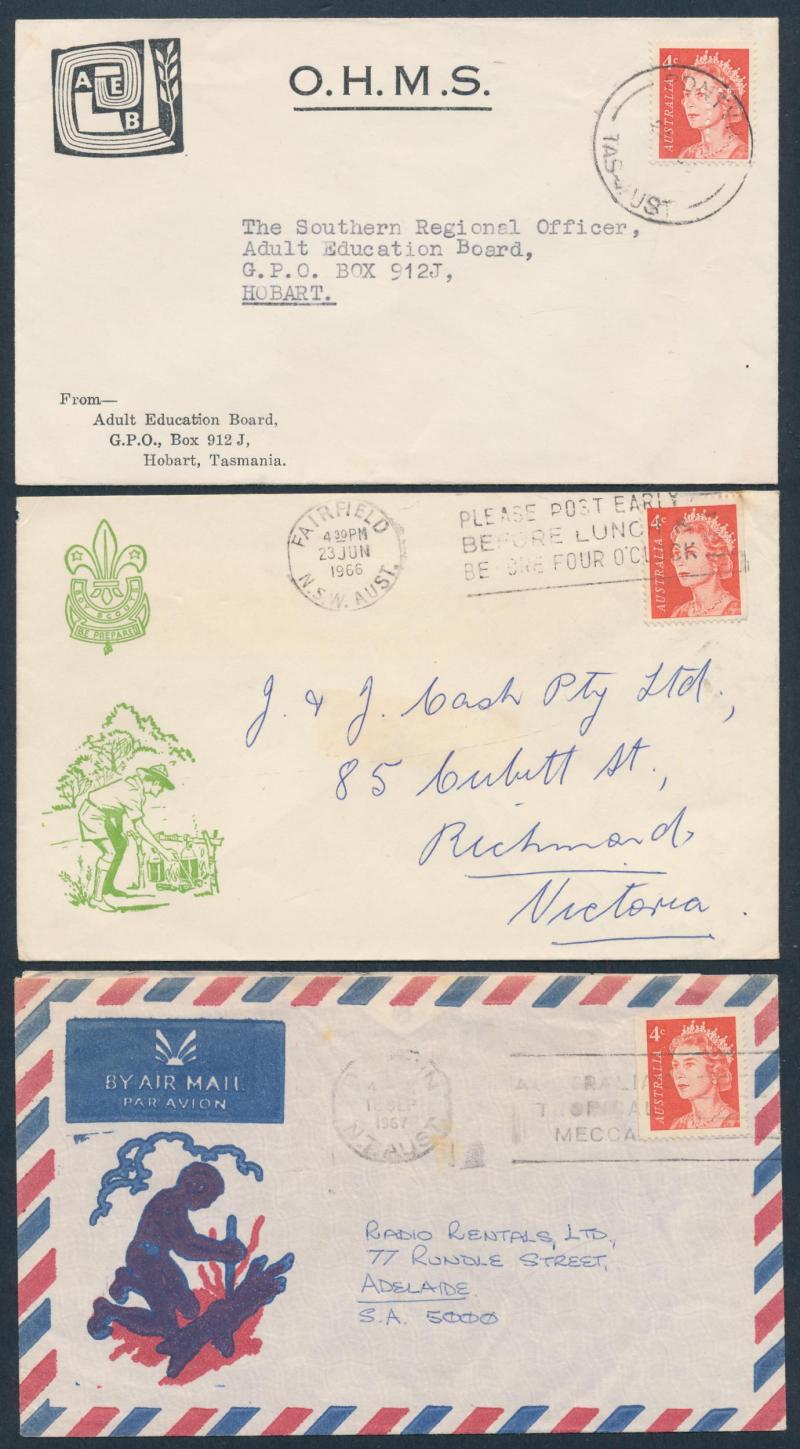 A T E B
O.H.M.S.
4c
AUSTRALIA
TAS-AUST
The Southern Regional Officer,
Adult Education Board,
G.P.O. BOX 912J,
HOBART.
From—
Adult Education Board,
G.P.O., Box 912 J,
Hobart, Tasmania.
FAIRFIELD
4 30 PM
23 JUN
1966
N.S.W. AUST.
PLEASE POST EARLY
BEFORE LUNCH
BEFORE FOUR O'CLOCK
4c
AUSTRALIA
BOY SCOUTS
BE PREPARED
J. & J. Cash Pty Ltd,
85 Cubitt St.,
Richmond,
Victoria.
BY AIR MAIL
PAR AVION
SEP
1967
N.T. AUST.
AUSTRALIA
TROPICAL
MECCA
4c
AUSTRALIA
RADIO RENTALS, LTD,
77 RUNDLE STREET,
ADELAIDE.
S.A. 5000